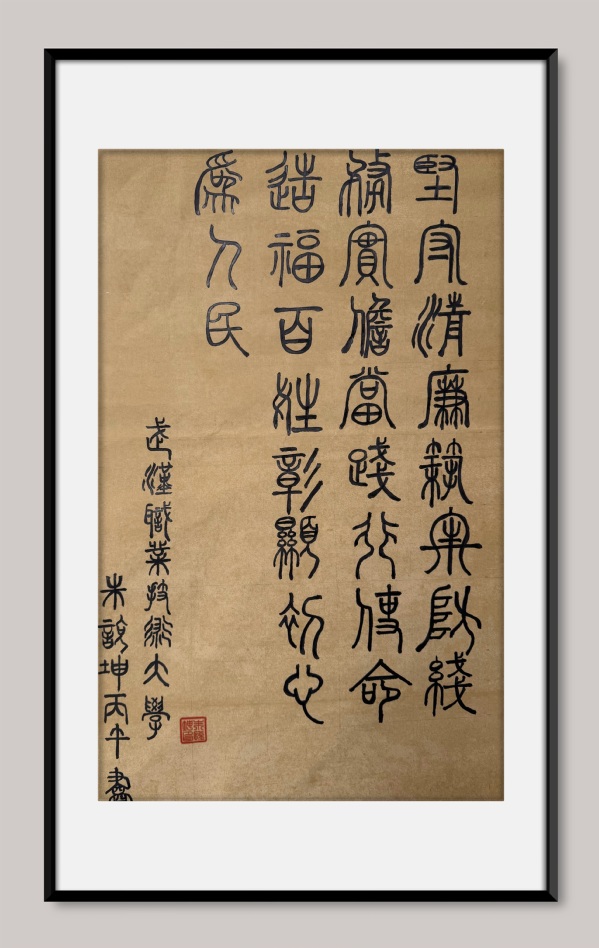 堅守清廉築牢防綫
務實儋當踐行使命
造福百姓彰顯初心
爲人民
武漢職業技術大學
朱說坤丙午書